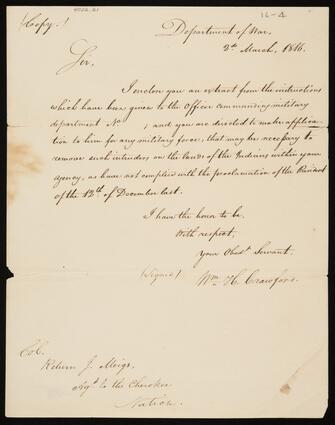 (Copy.)
4026.31
16-4
Department of War,
2d March, 1816.
Sir,
I enclose you an extract from the instructions
which have been given to the Officer commanding military
department No ; and you are directed to make applica-
tion to him for any military force, that may be necessary to
remove such intruders on the lands of the Indians within your
agency, as have not complied with the proclamation of the President
of the 12th of December last.
I have the honor to be
With respect,
Your Obedt. Servant.
(Signed) Wm. H. Crawford.
Col.
Return J. Meigs.
Agt. to the Cherokee
Nation.